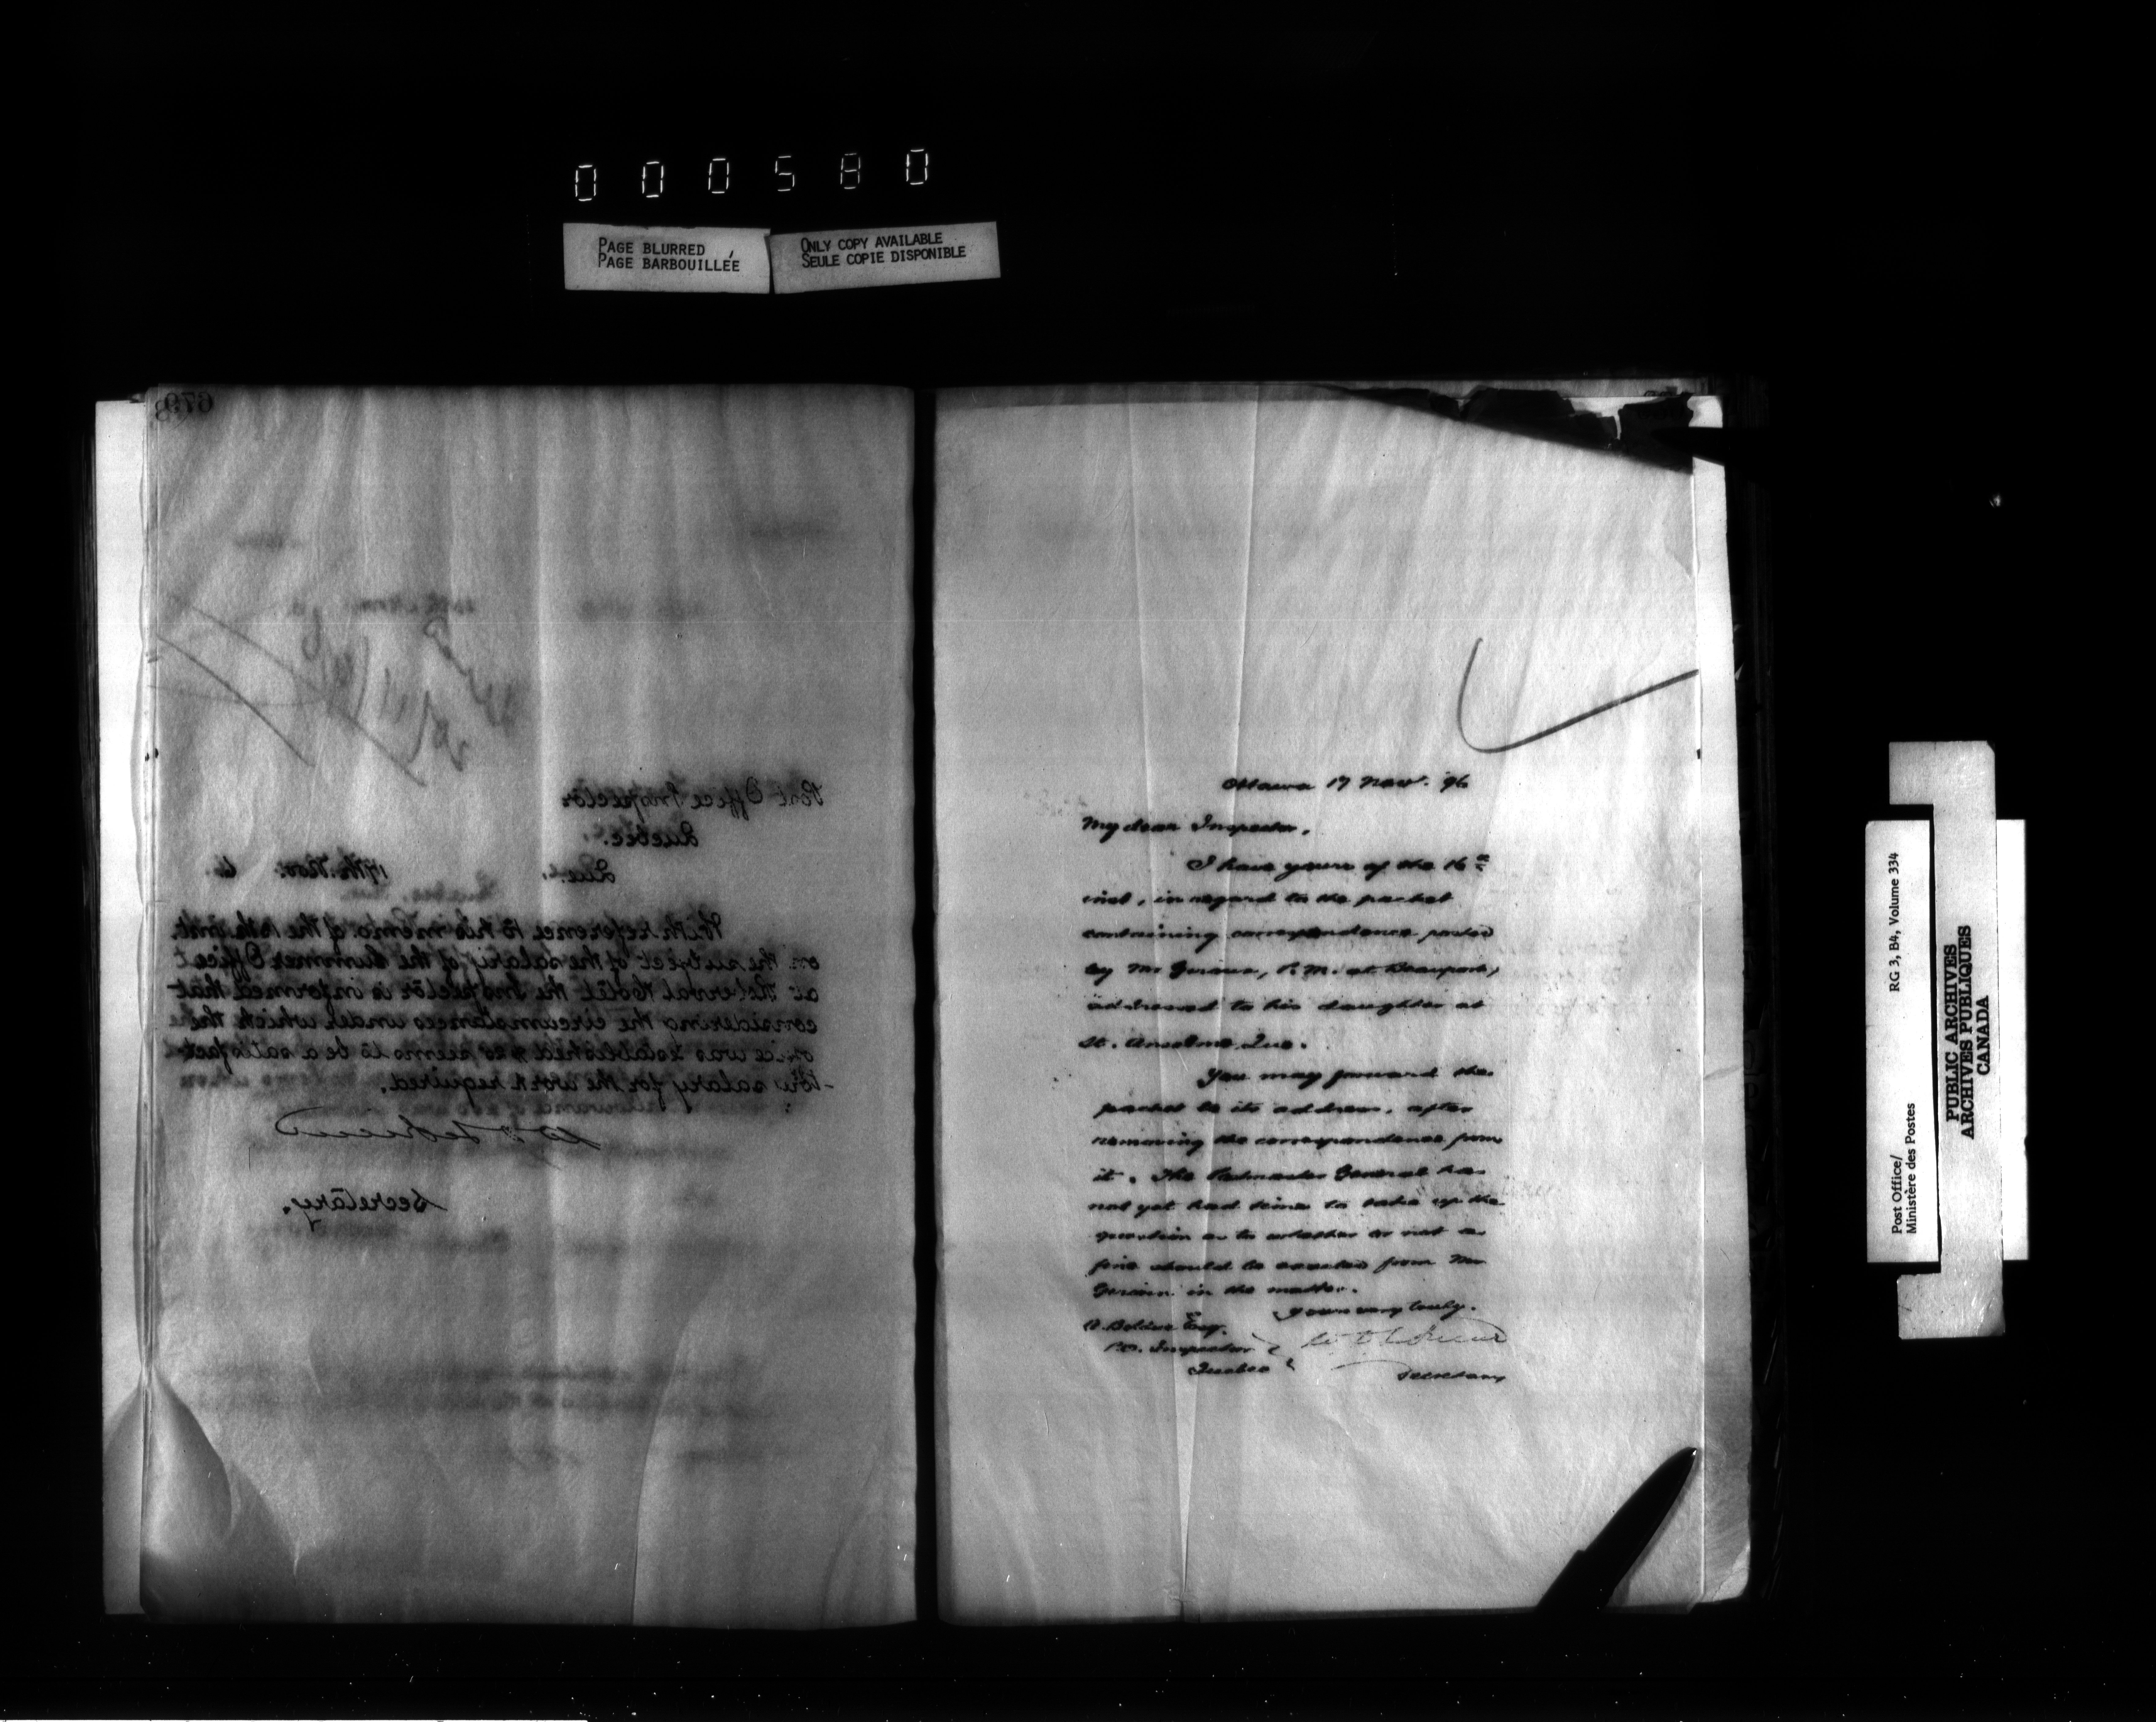 000580
PAGE BLURRED
PAGE BARBOUILLÉE
ONLY COPY AVAILABLE
SEULE COPIE DISPONIBLE
679
Post Office Inspector
Quebec.
Que. 17th Nov. 6.
With reference to his memo of the 13th inst.
on the subject of the salary of the Summer Office
at Roberval Hotel the Inspector is informed that
considering the circumstances under which the
office was established, seems to be a satisfact
-ory salary for the work required.
Secretary.
Ottawa 17 Nov. 96
My dear Inspector,
I have yours of the 16th
inst, in regard to the packet
containing correspondence posted
by Mr P.M. at Beauport,
addressed to his daughter at
St. Anselme, Que.
You may forward the
packet to its address, after
removing the correspondence from
it. The Postmaster General has
not yet had time to take up the
question as to whether or not a
fine should be exacted from Mr
in the matter.
Yours very truly.
A. Bolduc Esq.
P.O. Inspector
Quebec
Secretary
Post Office/
Ministère des Postes
RG 3, B4, Volume 334
PUBLIC ARCHIVES
ARCHIVES PUBLIQUES
CANADA